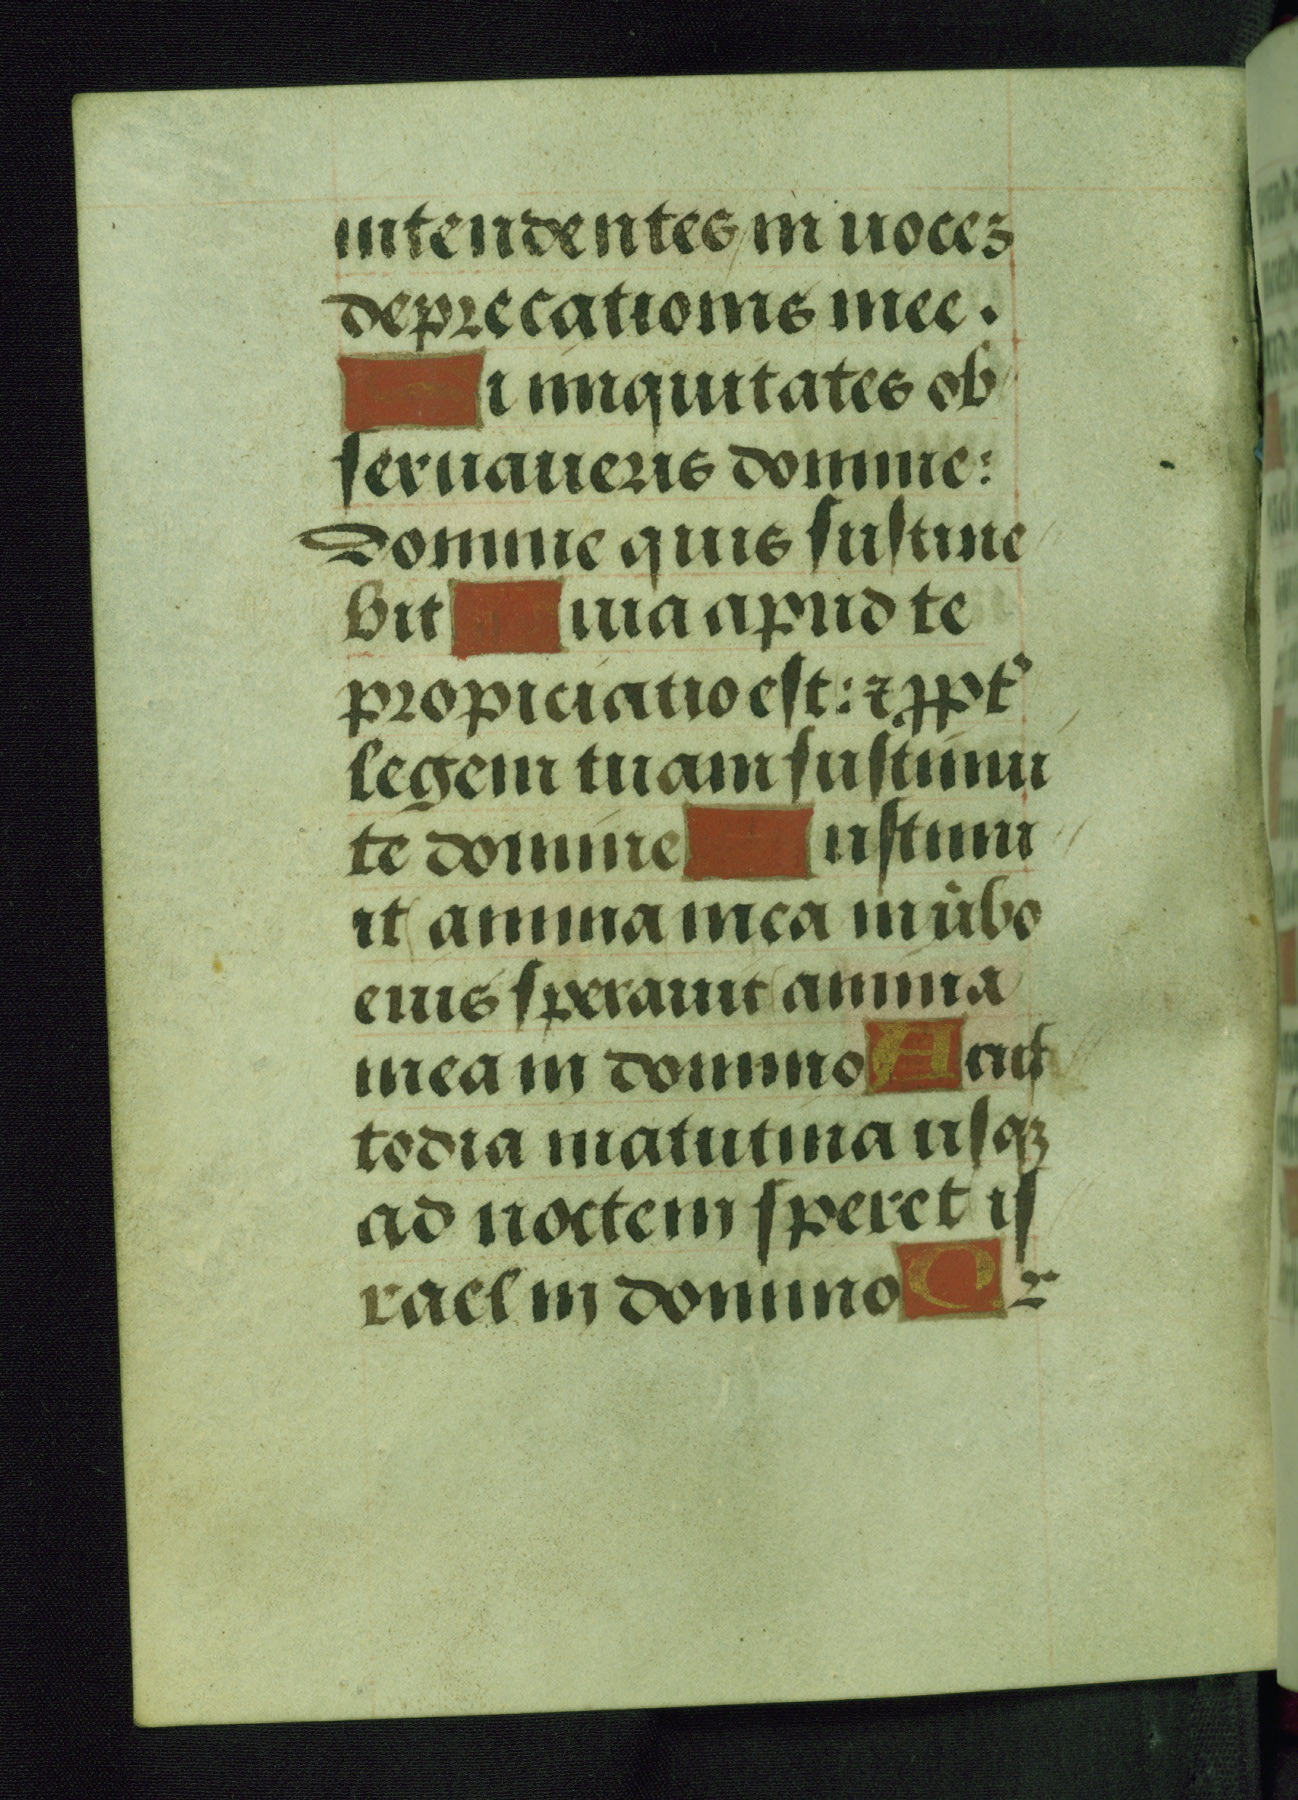 intendentes in uoceʒ
deprecationis mee.
i iniquitates ob
seruaueris domine:
Domine quis sustine
bit uia apud te
propiciatio est: ⁊ ꝓpt̓
legem tuam sustinui
te domine ustinu
it anima mea in u̓bo
eius sperauit anima
mea in domino A cus
todia matutina usqʒ
ad noctem speret is
rael in domino Q r